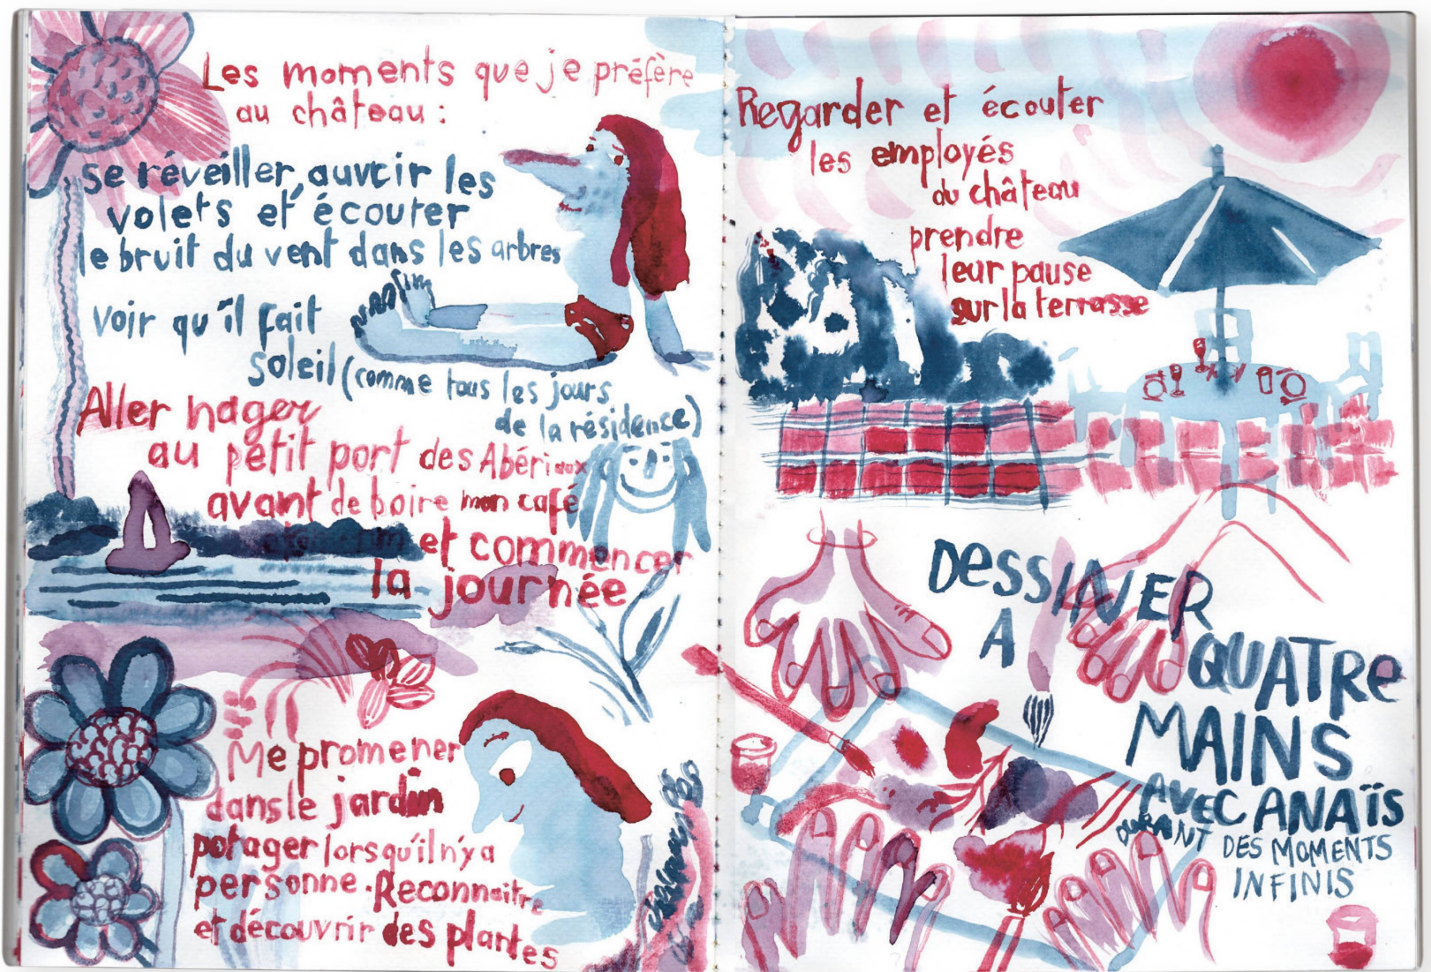 Les moments que je préfère
au château :
se réveiller, ouvrir les
volets et écouter
le bruit du vent dans les arbres
voir qu'il fait
soleil (comme tous les jours
de la résidence)
Aller nager
au petit port des Abériaux
avant de boire mon café
et commencer
la journée
Me promener
dans le jardin
potager lorsqu'il n'y a
personne. Reconnaitre
et découvrir des plantes
Regarder et écouter
les employés
du château
prendre
leur pause
sur la terrasse
DESSINER
A
QUATRE
MAINS
AVEC ANAÏS
DURANT DES MOMENTS
INFINIS